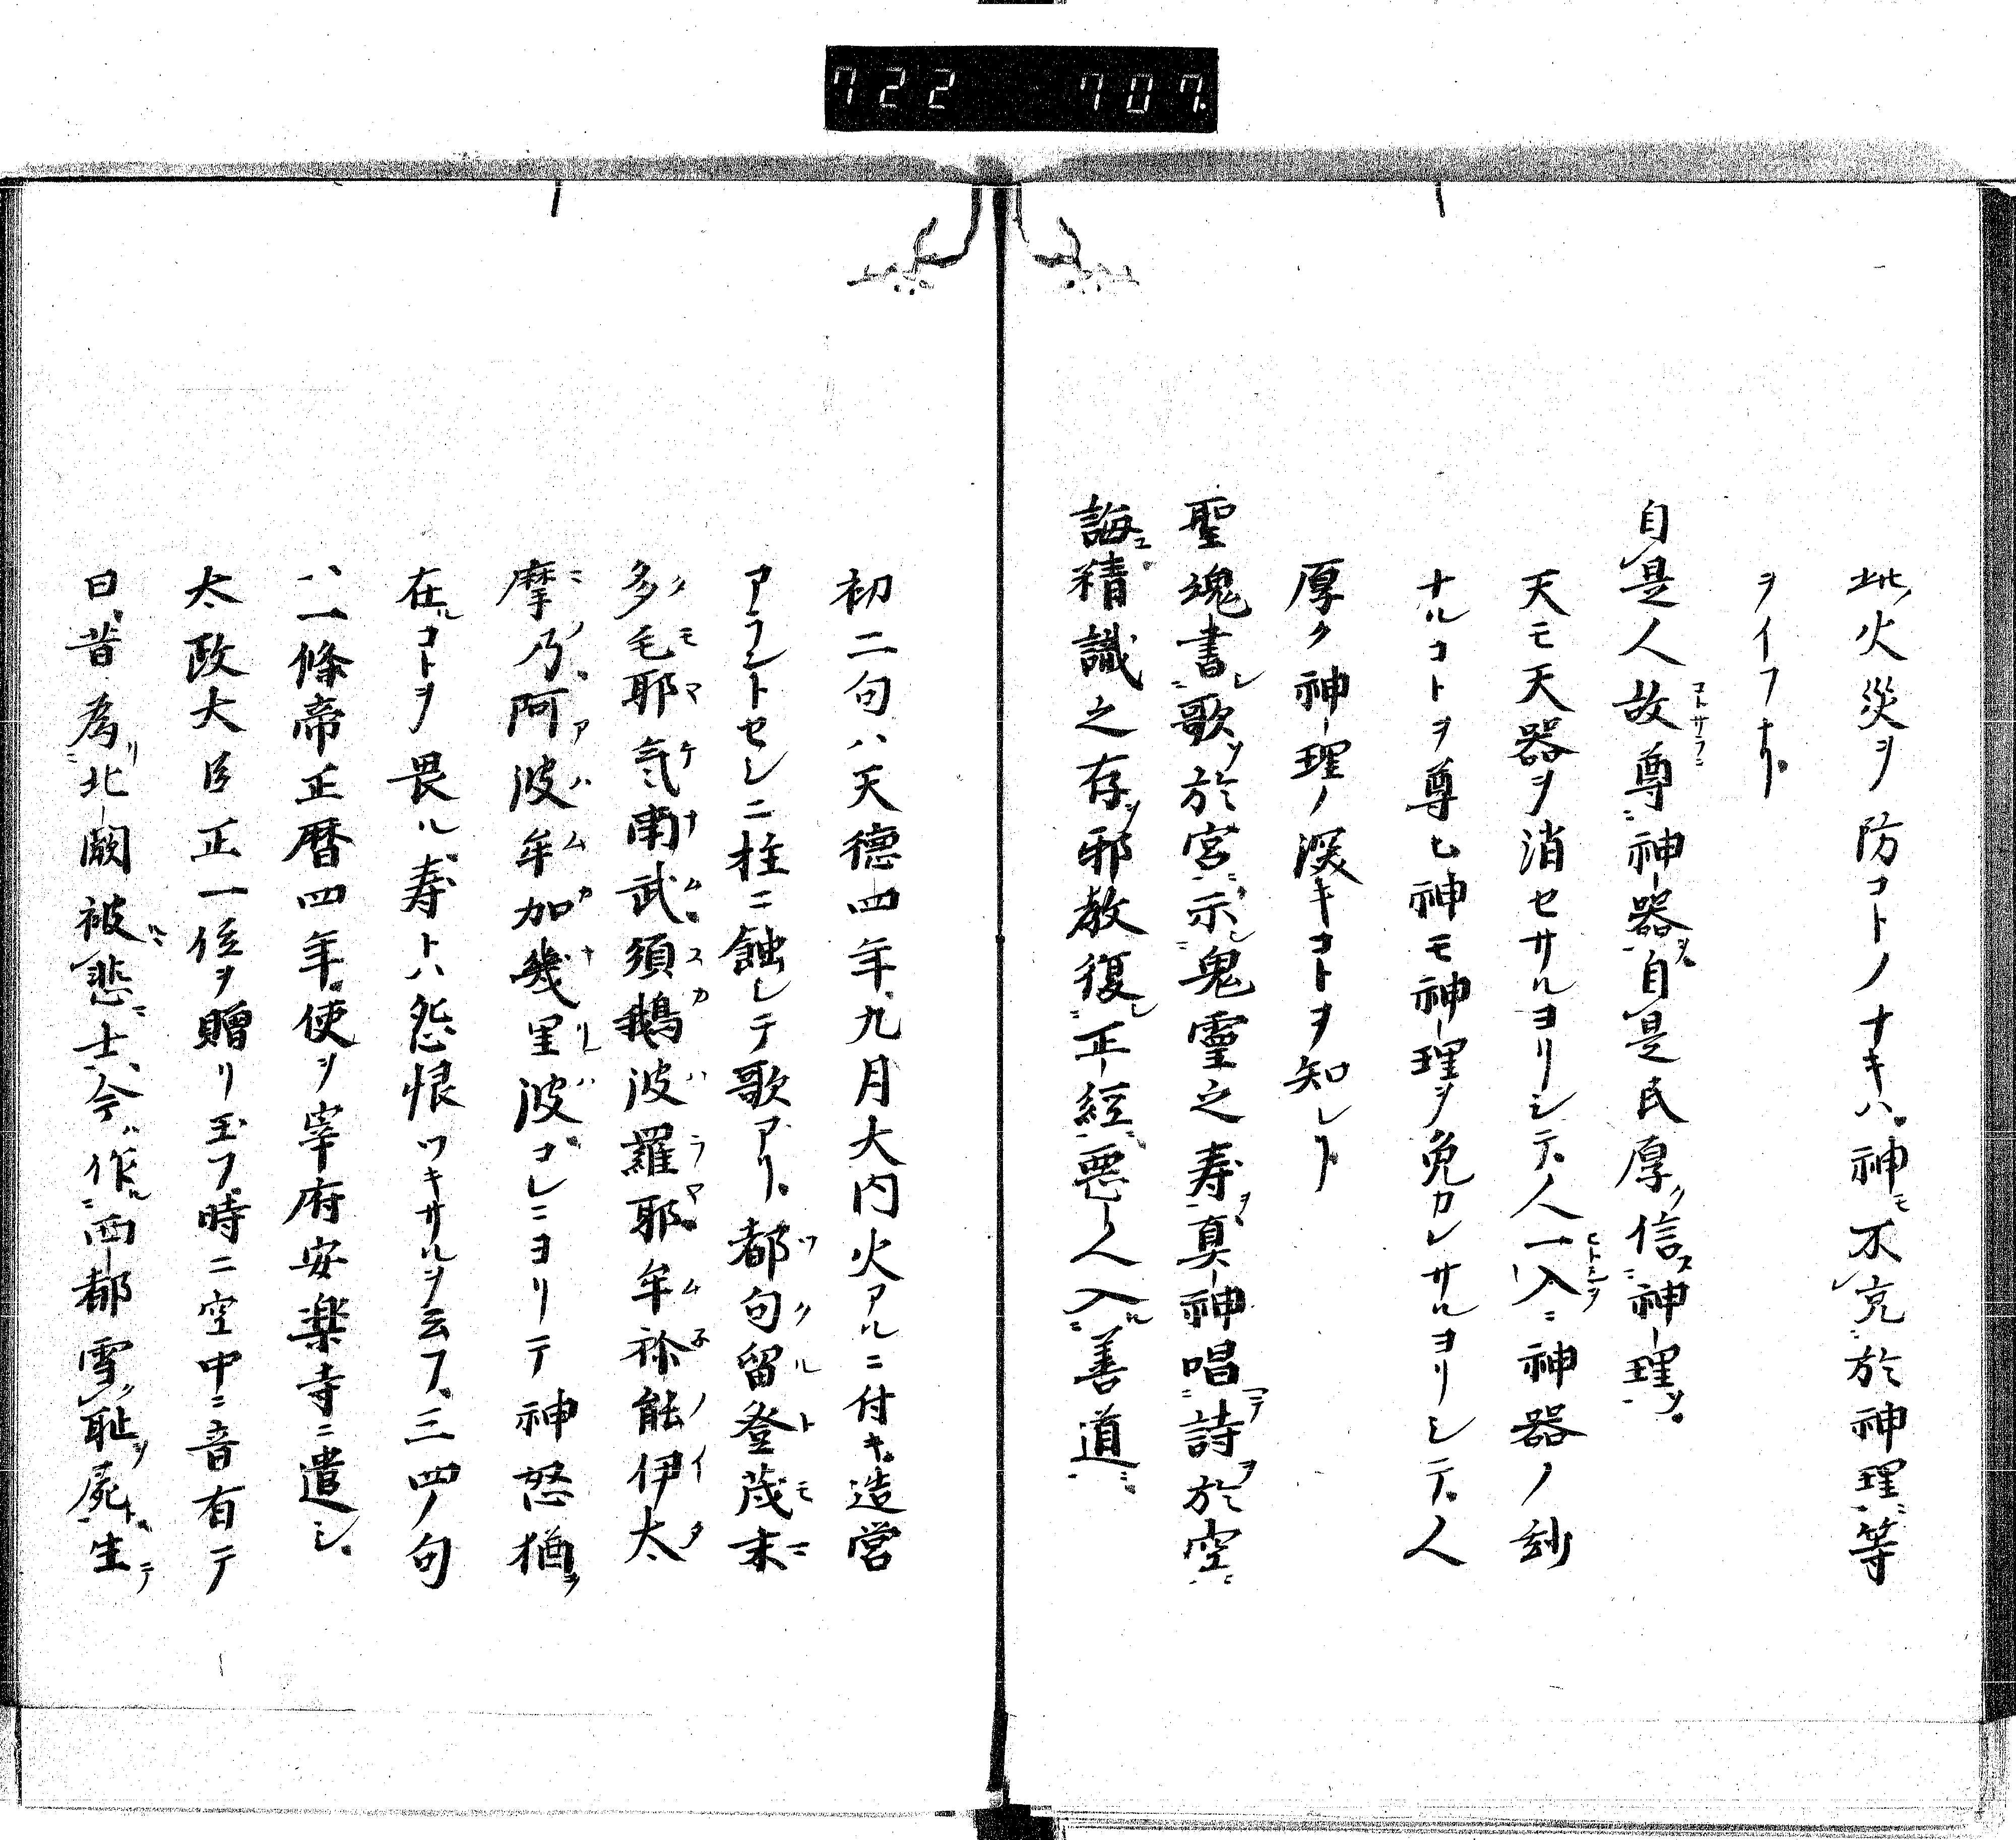 722 707.
此火災ヲ防コトノナキハ神モ不克於神理等
ヲイフナリ
自是人故尊神器自是民厚信神理
天モ天器ヲ消セサルヨリシテ人一入ニ神器ノ妙
ナルコトヲ尊ヒ神モ神理ヲ免カレサルヨリシテ人
厚ク神理ノ深キコトヲ知レト
聖魂書歌於宮示鬼霊之寿真神唱詩於空
誨精識之存邪教復正経悪人入善道
初二句ハ天徳四年九月大内火アルニ付キ造営
アラントセシニ柱ニ蝕シテ歌アリ都句留登茂末
多毛耶気南武須鵝波羅耶牟祢能伊太
摩乃阿波牟加幾里波コレニヨリテ神怒猶
在コトヲ畏ル寿トハ怨恨ツキサルヲ云フ三四ノ句
ハ一條帝正暦四年使ヲ宰府安楽寺ニ遣シ
太政大臣正一位ヲ贈リ玉フ時ニ空中ニ音有テ
曰昔為北闕被悲士今作西都雪恥屍生